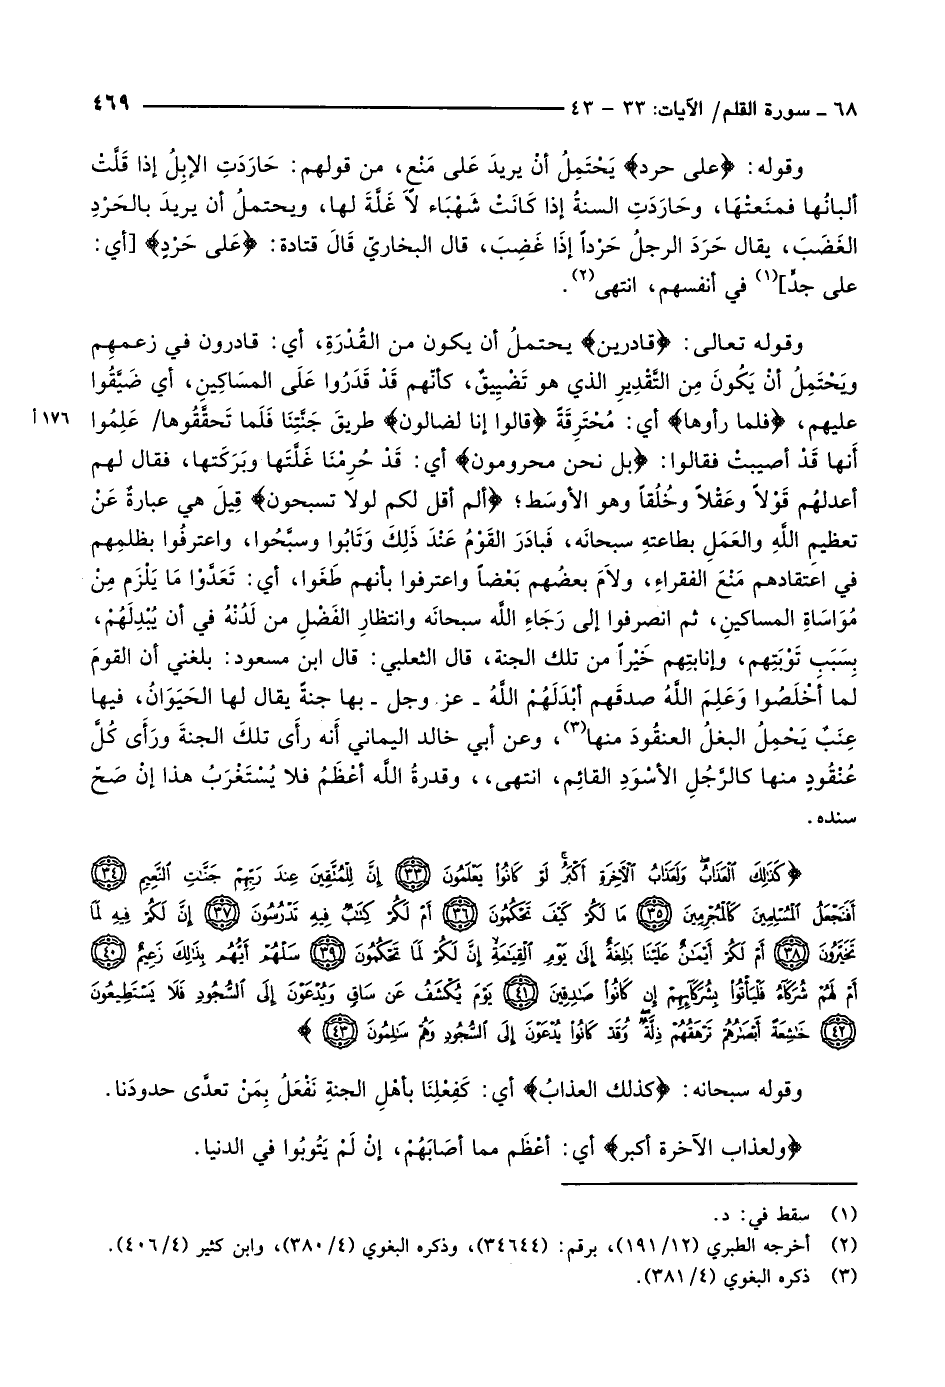 ٦٨ ـ سورة القلم/ الآيات: ٣٣ - ٤٣ ٤٦٩
وقوله: ﴿على حرد﴾ يَحْتَمِلُ أنْ يريدَ عَلى مَنْعٍ، من قولهم: حَارَدَتِ الإبِلُ إذا قَلَّتْ
ألبانُها فمنَعتْهَا، وحَارَدَتِ السنةُ إذا كَانَتْ شَهْبَاء لاَ غَلَّةَ لها، ويحتملُ أن يريدَ بالحَرْدِ
الغَضَبَ، يقال حَرَدَ الرجلُ حَرْداً إذَا غَضِبَ، قال البخاريّ قَالَ قتادة: ﴿عَلى حَرْدٍ﴾ [أي:
على جدٍّ](١) في أنفسهم، انتهى(٢).
وقوله تعالى: ﴿قادرين﴾ يحتملُ أن يكون من القُدْرَةِ، أي: قادرون في زعمهم
ويَحْتَمِلُ أنْ يَكُونَ مِن التَّقْدِيرِ الذي هو تَضْيِيقٌ، كأنّهم قَدْ قَدَرُوا عَلَى المسَاكِينِ، أي ضَيَّقُوا
عليهم، ﴿فلما رأوها﴾ أي: مُحْتَرِقَةً ﴿قالوا إنا لضالون﴾ طريقَ جَنَّتِنَا فَلما تَحقَّقُوها/ عَلِمُوا ١٧٦أ
أَنها قَدْ أصيبتْ فقالوا: ﴿بل نحن محرومون﴾ أي: قَدْ حُرِمْنَا غَلَّتَها وبَرَكَتها، فقال لهم
أعدلهُم قَوْلاً وعَقْلاً وخُلُقاً وهو الأوسَط؛ ﴿ألم أقل لكم لولا تسبحون﴾ قِيلَ هي عبارةٌ عَنْ
تعظيمِ اللَّهِ والعَمَلِ بطاعتهِ سبحانَه، فَبادَرَ القَوْمُ عَنْدَ ذَلِكَ وَتَابُوا وسبَّحُوا، واعترفُوا بظلمِهم
في اعتقادهم مَنْعَ الفقراءِ، ولاَمَ بعضُهم بَعْضاً واعترفوا بأنهم طَغَوا، أي: تَعَدَّوْا مَا يَلْزَم مِنْ
مُوَاسَاةِ المساكينِ، ثم انصرفوا إلى رَجَاءِ اللَّه سبحانَه وانتظارِ الفَضْلِ من لَدُنْهُ في أن يُبْدِلَهُمْ،
بِسَبَبِ تَوْبَتِهم، وإنابتِهم خَيْراً من تلك الجنة، قال الثعلبي: قال ابن مسعود: بلغني أن القومَ
لما أخْلَصُوا وَعَلِمَ اللَّهُ صدقَهم أبْدَلَهُمْ اللَّهُ ـ عز وجل ـ بها جنةً يقال لها الحَيَوَانُ، فيها
عِنَبٌ يَحْمِلُ البغلُ العنقودَ منها(٣)، وعن أبي خالد اليماني أَنه رأى تلكَ الجنةَ ورَأَى كُلَّ
عُنْقُودٍ منها كالرَّجُلِ الأسْوَدِ القائِم، انتهى،، وقدرةُ اللَّه أعْظَمُ فلا يُسْتَغْرَبُ هذا إنْ صَحّ
سنده.
﴿كَذَلِكَ الْعَذَابُ وَلَعَذَابُ الْآخِرَةِ أَكْبَرُ لَوْ كَانُوا يَعْلَمُونَ ٣٣ إِنَّ لِلْمُتَّقِينَ عِندَ رَبِّهِمْ جَنَّاتِ النَّعِيمِ ٣٤
أَفَنَجْعَلُ الْمُسْلِمِينَ كَالْمُجْرِمِينَ ٣٥ مَا لَكُمْ كَيْفَ تَحْكُمُونَ ٣٦ أَمْ لَكُمْ كِتَابٌ فِيهِ تَدْرُسُونَ ٣٧ إِنَّ لَكُمْ فِيهِ لَمَا
تَخَيَّرُونَ ٣٨ أَمْ لَكُمْ أَيْمَانٌ عَلَيْنَا بَالِغَةٌ إِلَى يَوْمِ الْقِيَامَةِ إِنَّ لَكُمْ لَمَا تَحْكُمُونَ ٣٩ سَلْهُمْ أَيُّهُم بِذَلِكَ زَعِيمٌ ٤٠
أَمْ لَهُمْ شُرَكَاءُ فَلْيَأْتُوا بِشُرَكَائِهِمْ إِن كَانُوا صَادِقِينَ ٤١ يَوْمَ يُكْشَفُ عَن سَاقٍ وَيُدْعَوْنَ إِلَى السُّجُودِ فَلَا يَسْتَطِيعُونَ
٤٢ خَاشِعَةً أَبْصَارُهُمْ تَرْهَقُهُمْ ذِلَّةٌ وَقَدْ كَانُوا يُدْعَوْنَ إِلَى السُّجُودِ وَهُمْ سَالِمُونَ ٤٣﴾
وقوله سبحانه: ﴿كذلك العذابُ﴾ أي: كَفِعْلِنَا بأهْلِ الجنةِ نَفْعَلُ بِمَنْ تعدَّى حدودَنا.
﴿ولعذاب الآخرة أكبر﴾ أي: أعْظَم مما أصَابَهُمْ، إنْ لَمْ يَتُوبُوا في الدنيا.
(١) سقط في: د.
(٢) أخرجه الطبري (١٩١/١٢)، برقم: (٣٤٦٤٤)، وذكره البغوي (٣٨٠/٤)، وابن كثير (٤٠٦/٤).
(٣) ذكره البغوي (٣٨١/٤).